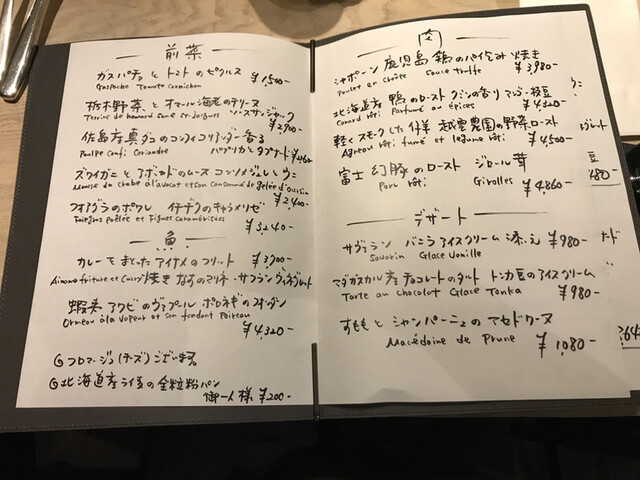 前菜
ガスパチョ と トマト の ピクルス ¥1,500-
Gaspacho Tomate Cornichon
栃木野菜 と オマール海老のテリーヌ
Terrine de homard Sauce St-Jacques ソースサンジャック
¥2,900-
佐島産真ダコのコンフィ コリアンダー香る
Poulpe confi Coriandre パプリカとタプナード
ズワイガニ と アボカドのムース コンソメジュレ ウニ
Mousse de crabe à l'avocat et son consommé de gelée d'oursin
¥2,400-
フォアグラのポワレ イチヂクのキャラメリゼ
Foiegras poêlée et Figues caramelisées
¥3,240-
魚
カレーでまとったアイナメのフリット ¥3,900-
Ainame friture et Curry 焼きなすのマリネ・サフランヴィネグレット
蝦夷アワビのヴァプール ポロネギのフォンダン
Ormeau à la vapeur et son fondant Poireau
¥4,320-
◎フロマージュ(チーズ)ございます。
◎北海道産ライ麦の全粒粉パン
御一人様 ¥200-
肉
シャポーン 鹿児島鶏のパイ包み焼き
Poulet en croûte Sauce truffe ¥3,980-
北海道産 鴨のロースト クミンの香り マンゴー・枝豆
Canard rôti Parfumé au épices ¥4,320-
軽くスモークした仔羊 越雲農園の野菜ロースト
Agneau rôti fumé et légume rôti ¥4,500-
富士幻豚のロースト ジロール茸
Porc rôti Girolles ¥4,860-
デザート
サヴァラン バニラアイスクリーム添え ¥980-
Savarin Glace Vanille
マダガスカル産チョコレートのタルト トンカ豆のアイスクリーム
Tarte au chocolat Glace Tonka ¥980-
すももとシャンパーニュのマセドワーヌ
Macédoine de Prune ¥1,080-
ウニ
豆
480-